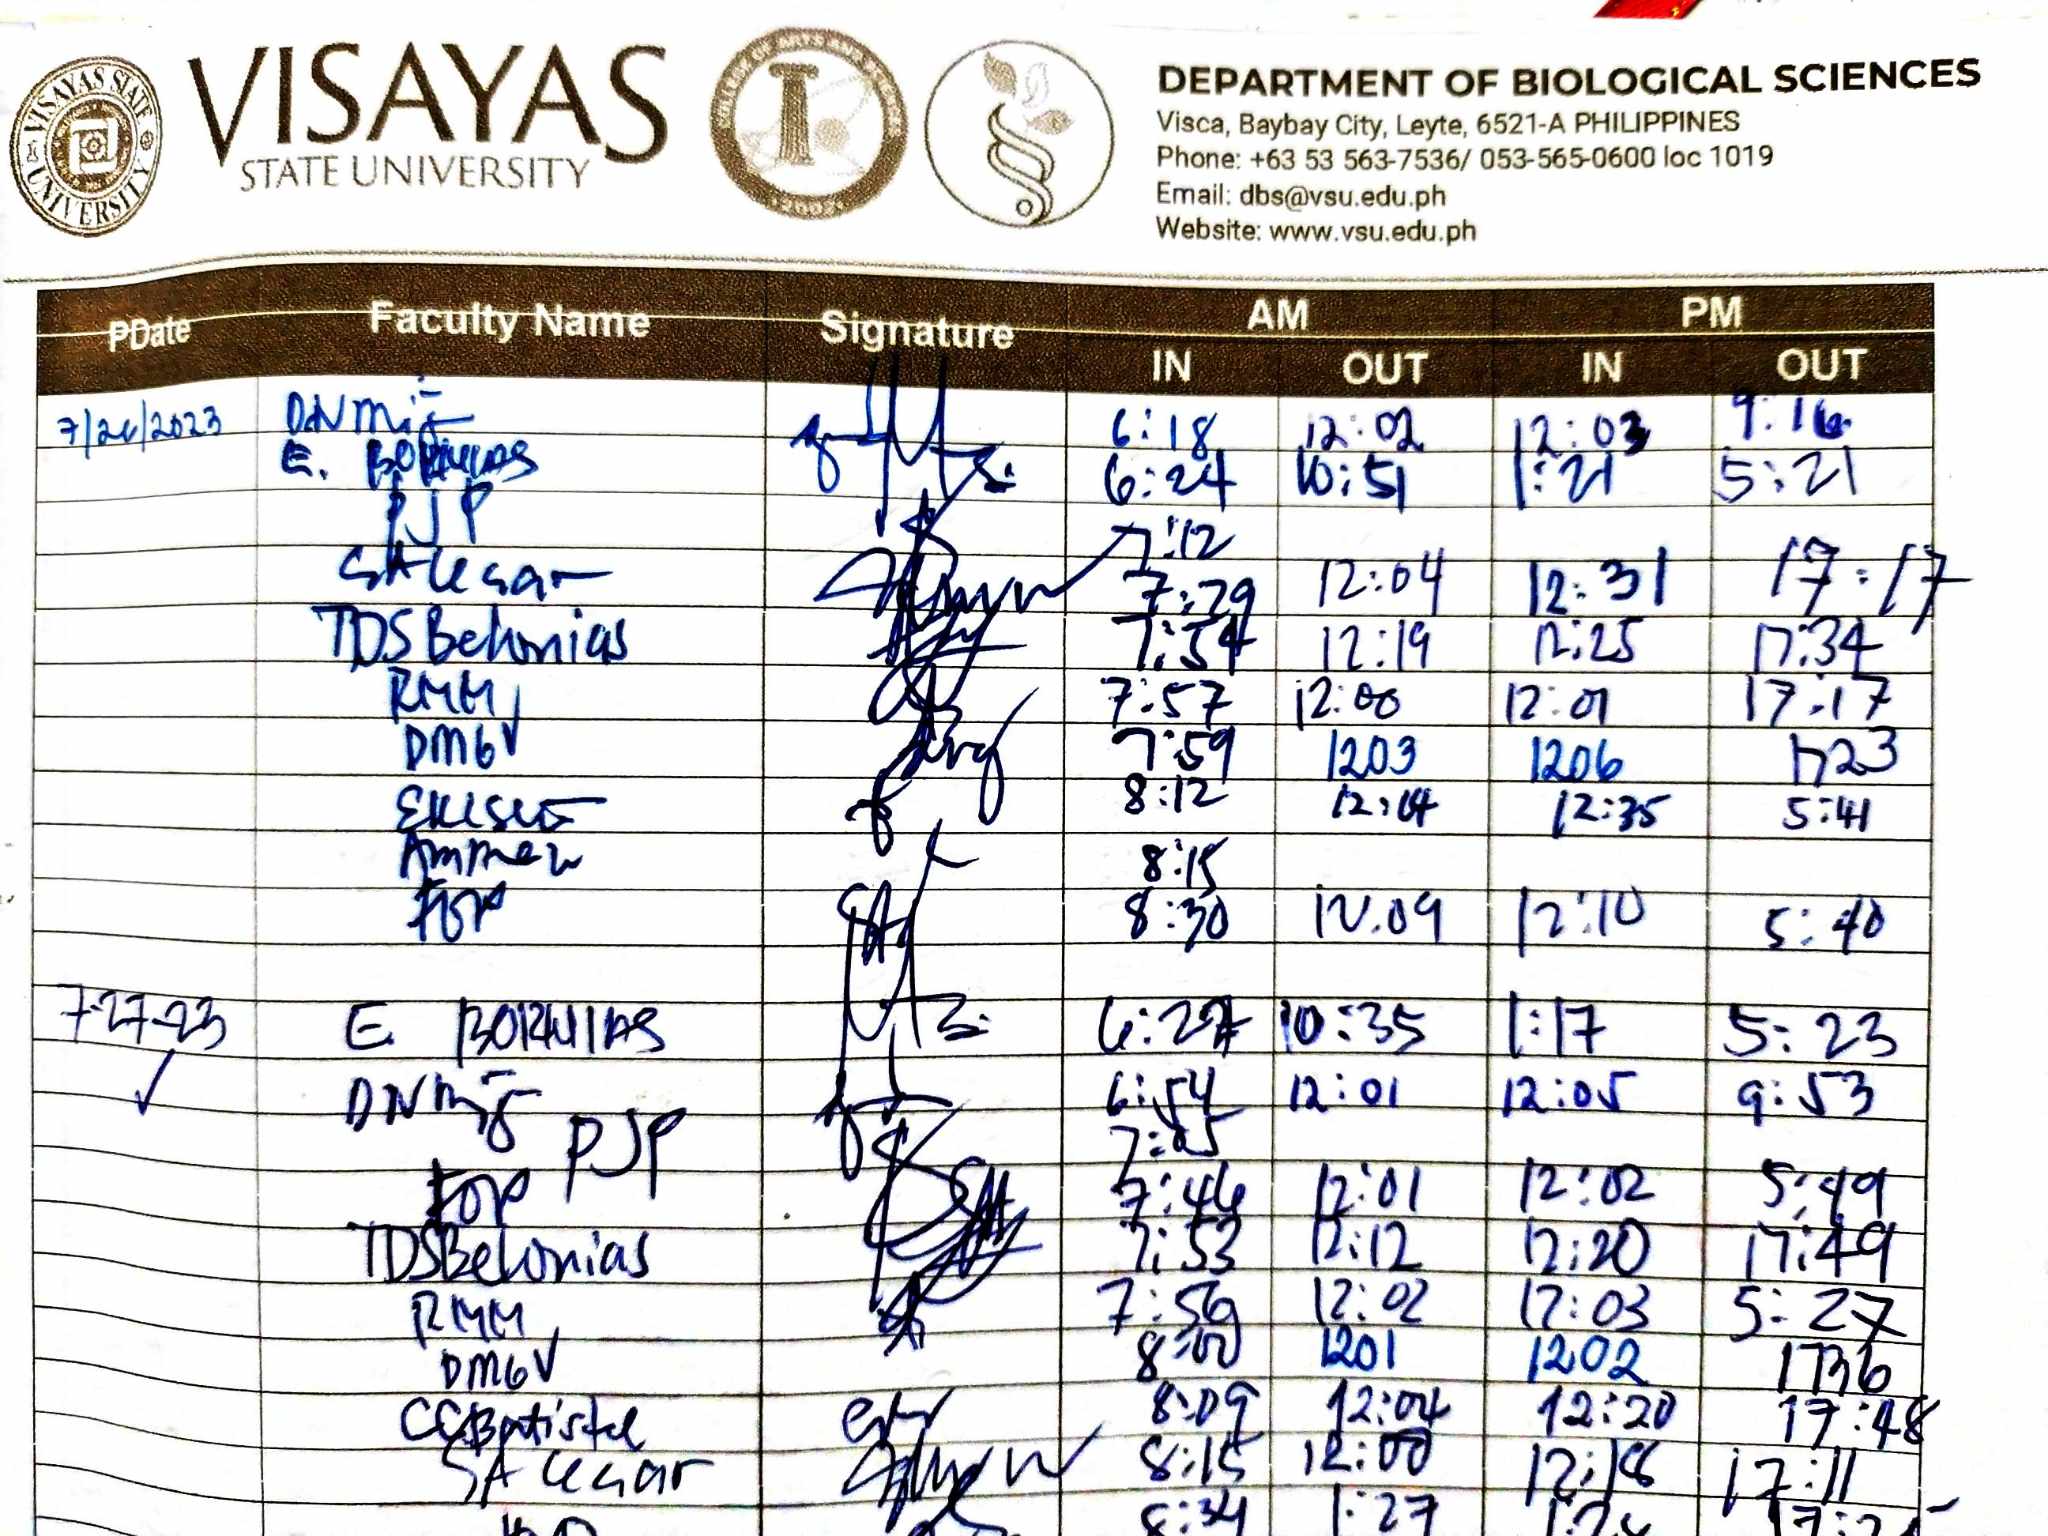 VISAYAS
STATE UNIVERSITY
VISAYAS STATE UNIVERSITY
COLLEGE OF ARTS AND SCIENCES
DEPARTMENT OF BIOLOGICAL SCIENCES
Visca, Baybay City, Leyte, 6521-A PHILIPPINES
Phone: +63 53 563-7536/ 053-565-0600 loc 1019
Email: dbs@vsu.edu.ph
Website: www.vsu.edu.ph
PDate Faculty Name Signature AM PM
IN OUT IN OUT
7/26/2023 6:18 12:02 12:03 9:16
E. BORNIAS 6:24 10:51 1:21 5:21
PJP 7:12
7:29 12:04 12:31 17:17
TDSBelonias 7:54 12:19 12:25 17:34
RMM 7:57 12:00 12:01 17:17
DMGV 7:59 1203 1206 1723
8:12 12:14 12:35 5:41
8:15
FOP 8:30 12:09 12:10 5:40
7-27-23 E. BORNIAS 6:27 10:35 1:17 5:23
6:54 12:01 12:05 9:53
PJP 7:05
FOP 7:46 12:01 12:02 5:49
TDSBelonias 7:53 12:12 12:20 17:49
RMM 7:56 12:02 12:03 5:27
DMGV 8:00 1201 1202 1736
CCBatistel 8:09 12:04 12:20 17:48
8:15 12:00 12:18 17:11
8:34 1:27